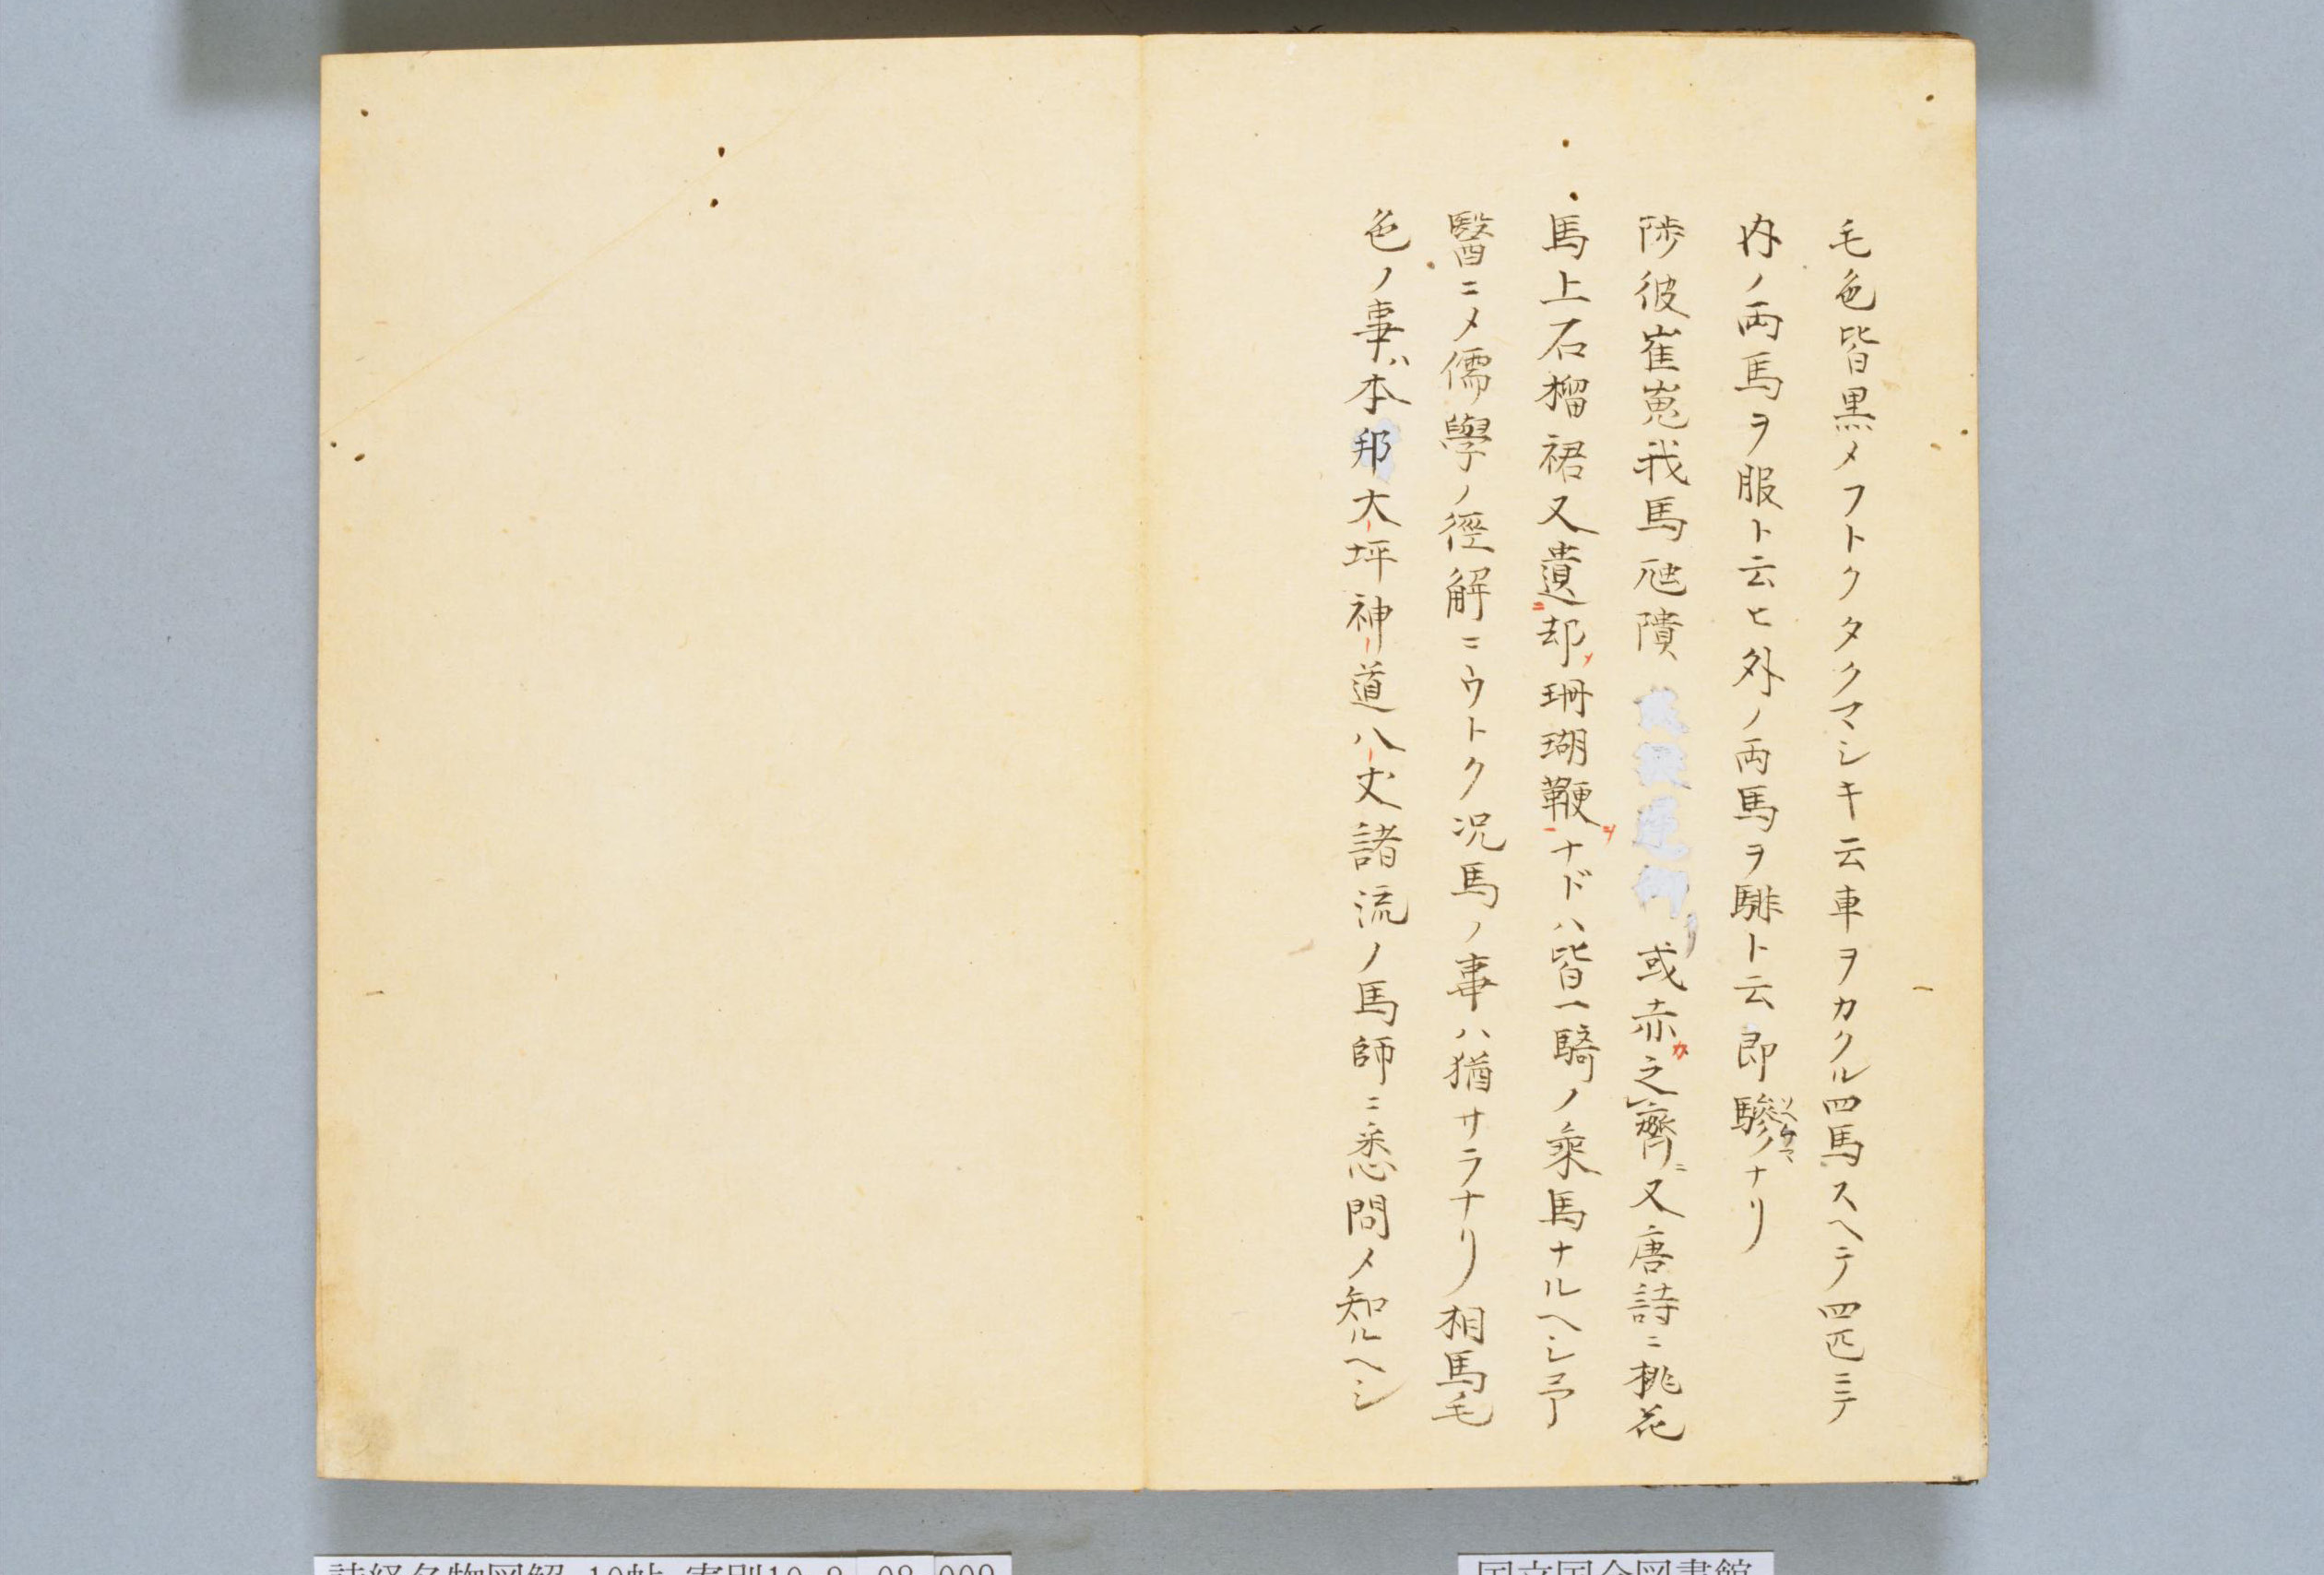 毛色皆黒メフトクタクマシキ云車ヲカクル四馬スヘテ四匹ニテ
内ノ両馬ヲ服ト云ヒ外ノ両馬ヲ騑ト云即驂ソヘウマノナリ
陟彼崔嵬我馬虺隤 或赤カ之齊ニ又唐詩ニ桃花
馬上石榴裙又遺ニ却メ珊瑚鞭一ヲナドハ皆一騎ノ乘馬ナルヘシ予
醫ニメ儒學ノ徑解ニウトク況馬ノ事ハ猶サラナリ相馬毛
色ノ事ハ本邦大坪神道八丈諸流ノ馬師ニ悉問メ知ルヘシ
国立国会図書館